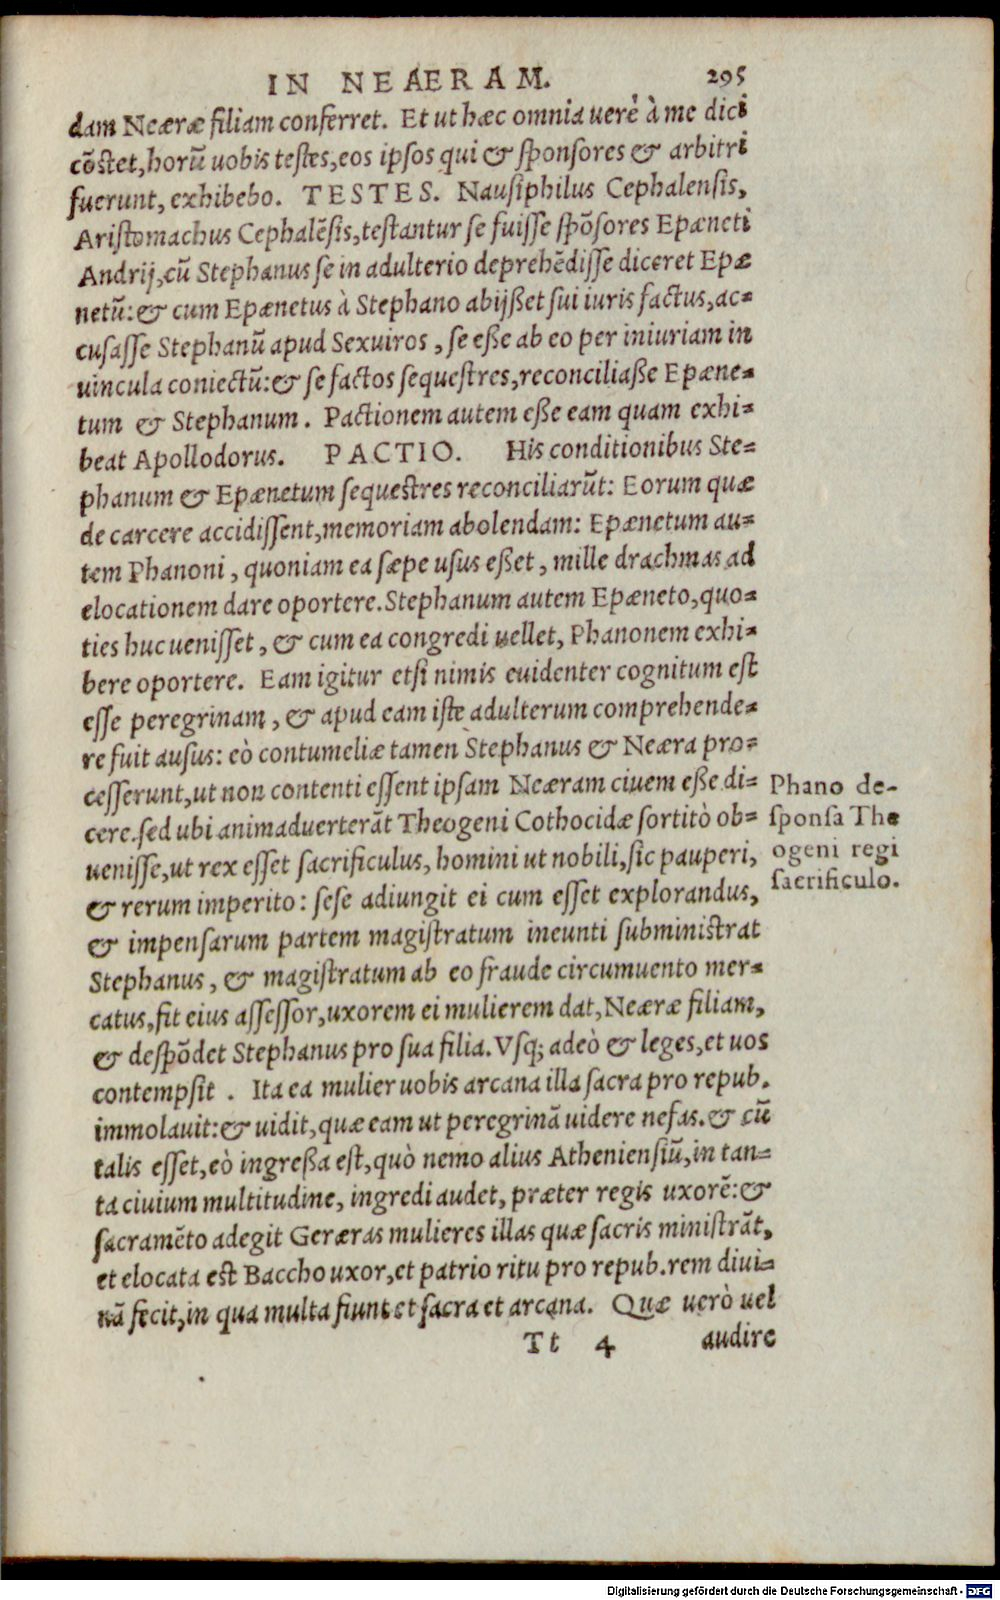 IN NEAERAM. 295
dam Neæræ filiam conferret. Et ut hæc omnia uerè à me dici
cõstet, horũ uobis testes, eos ipsos qui & sponsores & arbitri
fuerunt, exhibebo. TESTES. Nausiphilus Cephalensis,
Aristomachus Cephalẽsis, testantur se fuisse spõsores Epæneti
Andrij, cũ Stephanus se in adulterio deprehẽdisse diceret Epæ
netũ: & cum Epænetus à Stephano abijßet sui iuris factus, ac=
cusasse Stephanũ apud Sexuiros, se eße ab eo per iniuriam in
uincula coniectũ: & se factos sequestres, reconciliaße Epæne=
tum & Stephanum. Pactionem autem eße eam quam exhi=
beat Apollodorus. PACTIO. His conditionibus Ste=
phanum & Epænetum sequestres reconciliarũt: Eorum quæ
de carcere accidissent, memoriam abolendam: Epænetum au=
tem Phanoni, quoniam ea sæpe usus eßet, mille drachmas ad
elocationem dare oportere. Stephanum autem Epæneto, quo=
ties huc uenisset, & cum ea congredi uellet, Phanonem exhi=
bere oportere. Eam igitur etsi nimis euidenter cognitum est
esse peregrinam, & apud eam iste adulterum comprehende=
re fuit ausus: eò contumeliæ tamen Stephanus & Neæra pro=
cesserunt, ut non contenti essent ipsam Neæram ciuem eße di=
cere. sed ubi animaduerterãt Theogeni Cothocidæ sortitò ob=
uenisse, ut rex esset sacrificulus, homini ut nobili, sic pauperi,
& rerum imperito: sese adiungit ei cum esset explorandus,
& impensarum partem magistratum ineunti subministrat
Stephanus, & magistratum ab eo fraude circumuento mer=
catus, fit eius assessor, uxorem ei mulierem dat, Neæræ filiam,
& despõdet Stephanus pro sua filia. Vsq; adeò & leges, et uos
contempsit. Ita ea mulier uobis arcana illa sacra pro repub.
immolauit: & uidit, quæ eam ut peregrinã uidere nefas. & cũ
talis esset, eò ingreßa est, quò nemo alius Atheniensiũ, in tan=
ta ciuium multitudine, ingredi audet, præter regis uxorẽ: &
sacramẽto adegit Geræras mulieres illas quæ sacris ministrãt,
et elocata est Baccho uxor, et patrio ritu pro repub. rem diui=
nã fecit, in qua multa fiunt et sacra et arcana. Quæ uerò uel
Tt 4 audire
Phano de-
sponsa The
ogeni regi
sacrificulo.
Digitalisierung gefördert durch die Deutsche Forschungsgemeinschaft - DFG